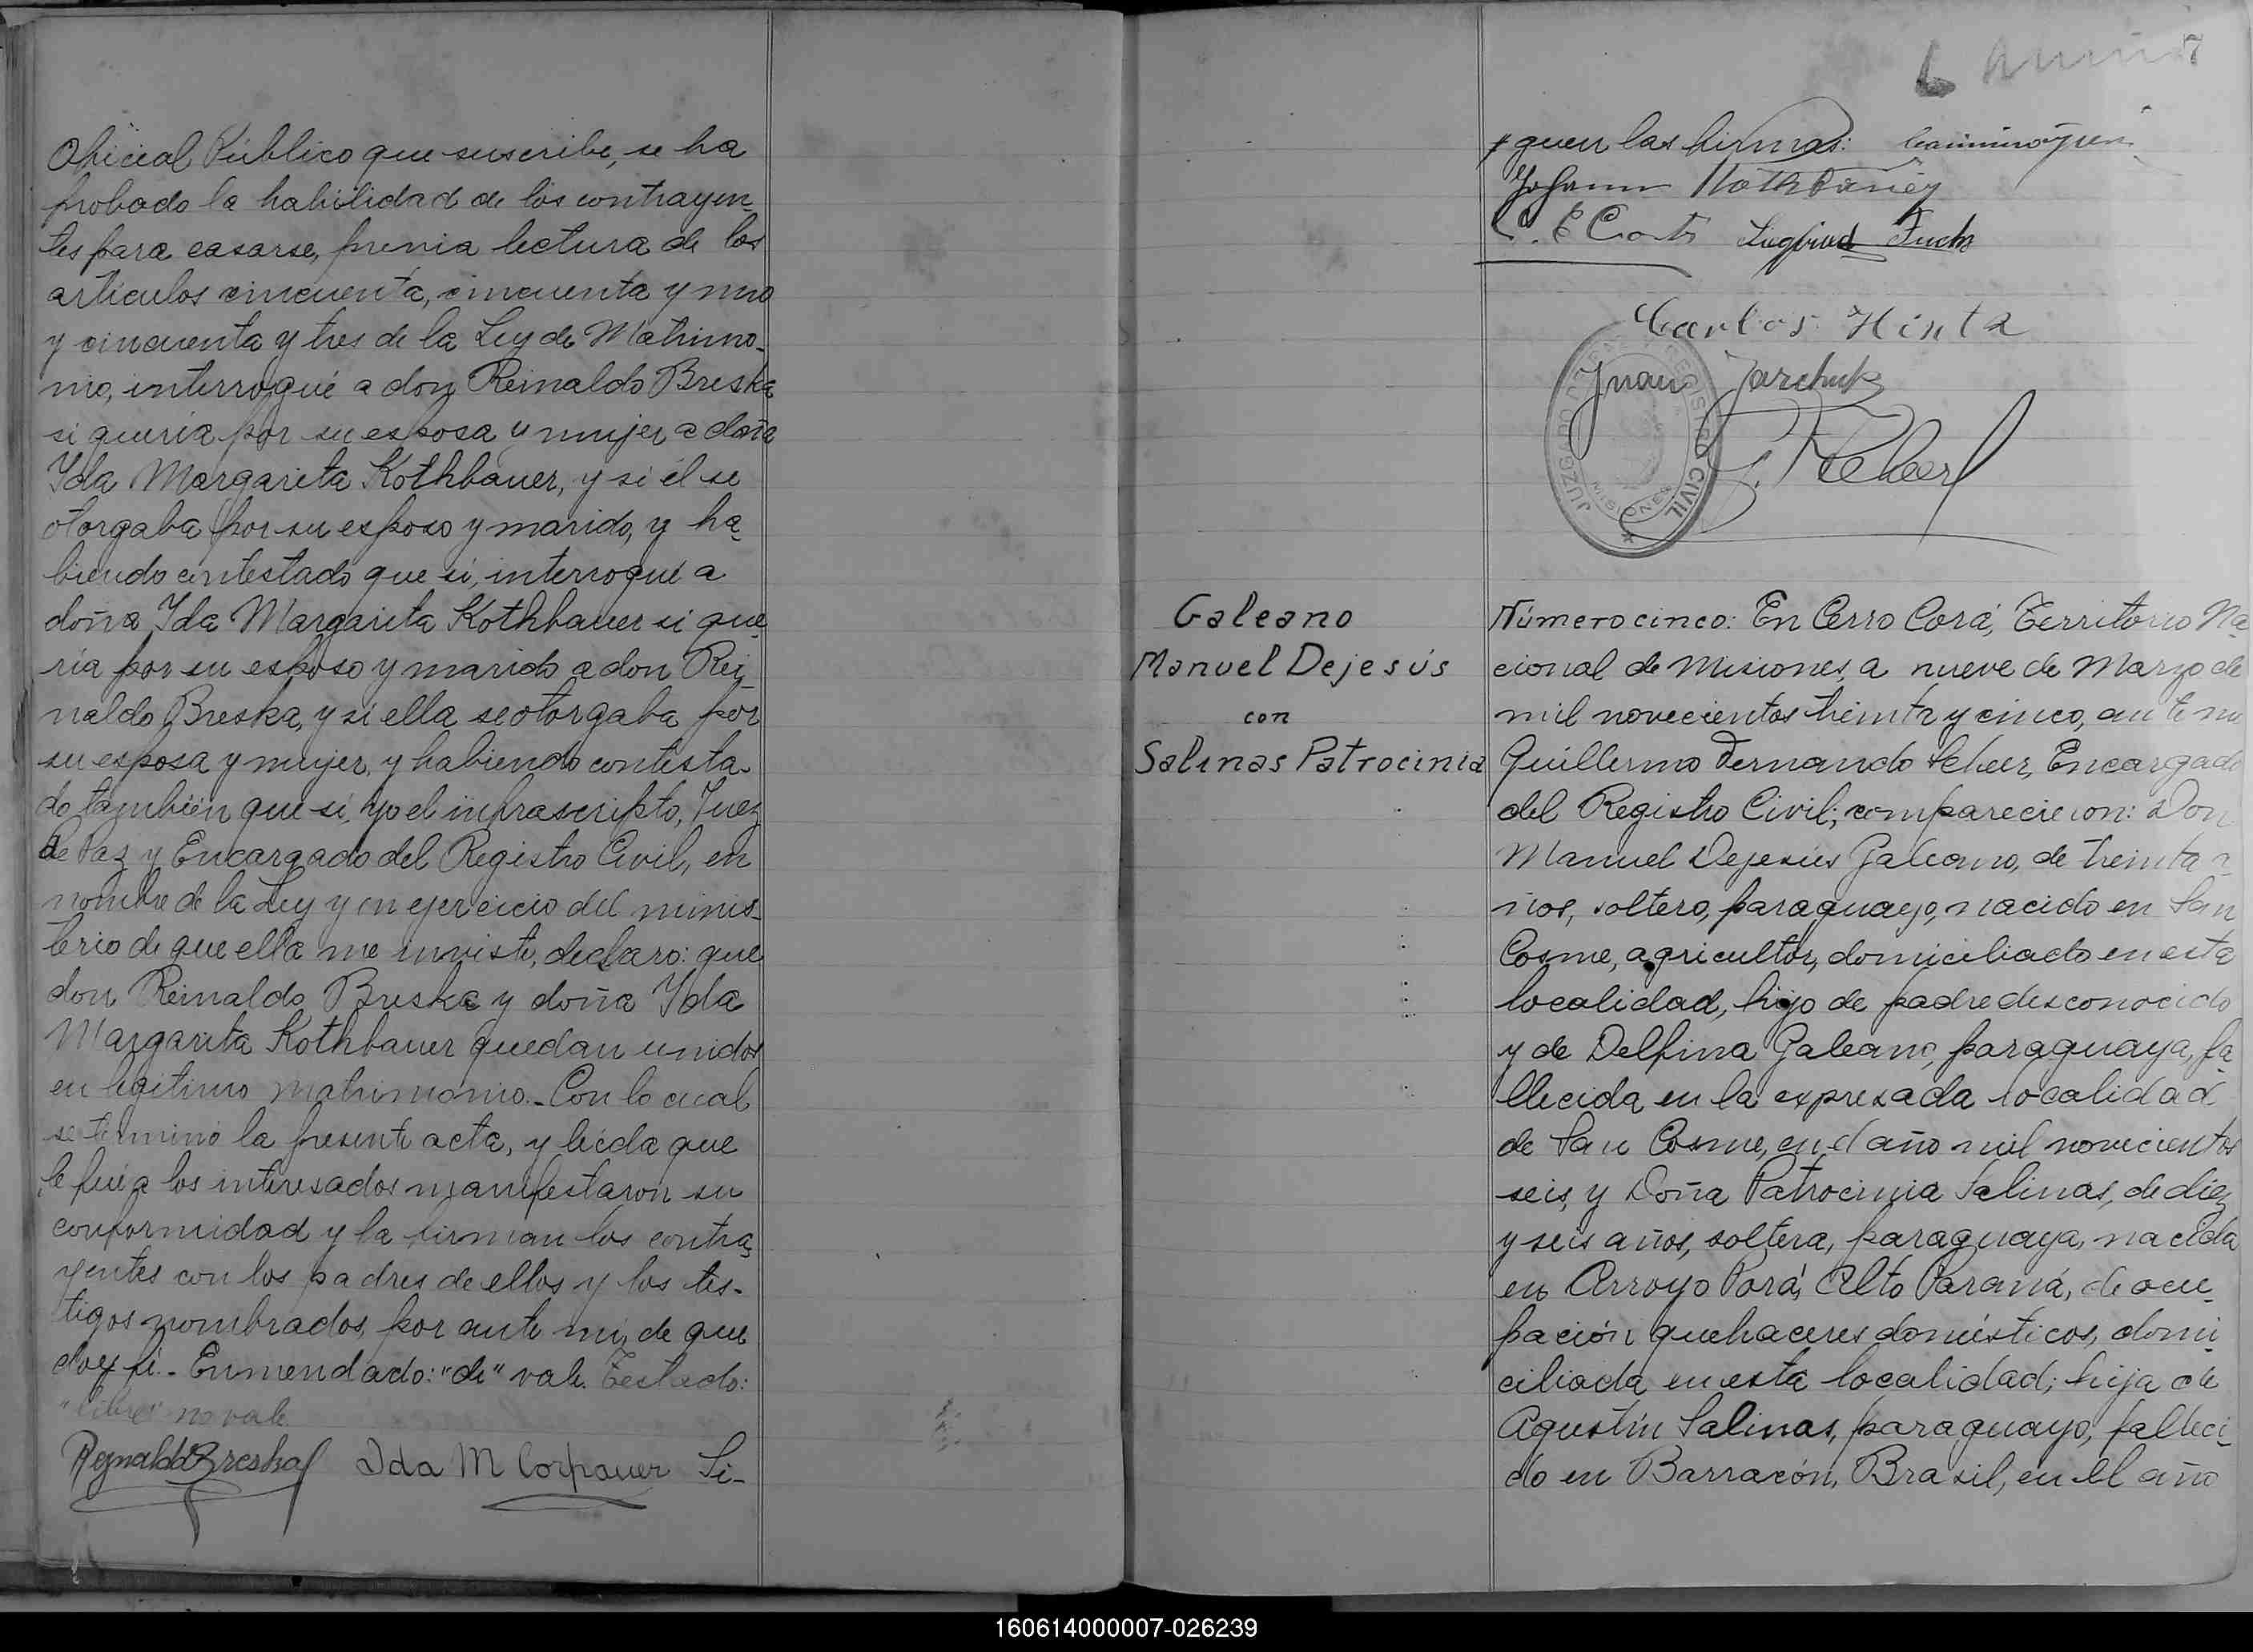 Oficial Público que suscribe, se ha
probado la habilidad de los contrayen-
tes para casarse, previa lectura de los
artículos cincuenta, cincuenta y uno
y cincuenta y tres de la Ley de Matrimo-
nio, interrogué a don Reinaldo Breska
si quería por su esposa y mujer a doña
Yda Margarita Kothbauer, y si él se
otorgaba por su esposo y marido, y ha-
biendo contestado que sí, interrogué a
doña Yda Margarita Kothbauer si que-
ría por su esposo y marido a don Rei-
naldo Breska, y si ella se otorgaba por
su esposa y mujer, y habiendo contesta-
do también que sí, yo el infrascripto, Juez
de Paz y Encargado del Registro Civil, en
nombre de la Ley y en ejercicio del minis-
terio de que ella me inviste, declaro: que
don Reinaldo Breska y doña Yda
Margarita Kothbauer quedan unidos
en legitimo matrimonio.- Con lo cual
se terminó la presente acta, y leída que
le fué a los interesados manifestaron su
conformidad y la firman los contra-
yentes con los padres de ellos y los tes-
tigos nombrados, por ante mi, de que
doy fé.- Enmendado: "de" vale. Testado:
"libre" no vale.
Reynaldo Breska Ida M Corpauer Si-
guen las firmas:
Johann
Siegfried Fuchs
Carlos Hinta
Juan Jarchuk
JUZGADO REGISTRO CIVIL
MISIONES
Galeano
Manuel Dejesús
con
Salinas Patrocinia
Número cinco: En Cerro Corá, Territorio Na-
cional de Misiones, a nueve de Marzo de
mil novecientos treinta y cinco, ante mi
Guillermo Fernando Scheer, Encargado
del Registro Civil; comparecieron: Don
Manuel Dejesús Galeano, de treinta a-
ños, soltero, paraguayo, nacido en San
Cosme, agricultor, domiciliado en esta
localidad, hijo de padre desconocido
y de Delfina Galeano, paraguaya, fa-
llecida en la expresada localidad
de San Cosme, en el año mil novecientos
seis, y Doña Patrocinia Salinas, de diez
y seis años, soltera, paraguaya, nacida
en Arroyo Porá, Alto Paraná, de ocu-
pación quehaceres domésticos, domi-
ciliada en esta localidad; hija de
Agustín Salinas, paraguayo, falleci-
do en Barracón, Brasil, en el año
160614000007-026239